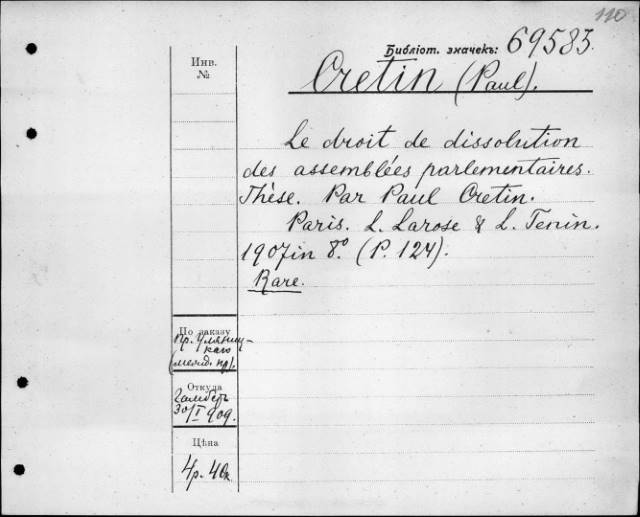 110
Библіот. значекъ: 69583.
Инв.
№
Cretin (Paul).
Le droit de dissolution
des assemblées parlementaires.
Thèse. Par Paul Cretin.
Paris. L. Larose & L. Tenin.
1907 in 8.° (P. 124).
Rare.
По заказу
пр. Уляниц-
каго
(межд. пр).
Откуда
Гамберъ
30/I 909.
Цѣна
4р. 40к